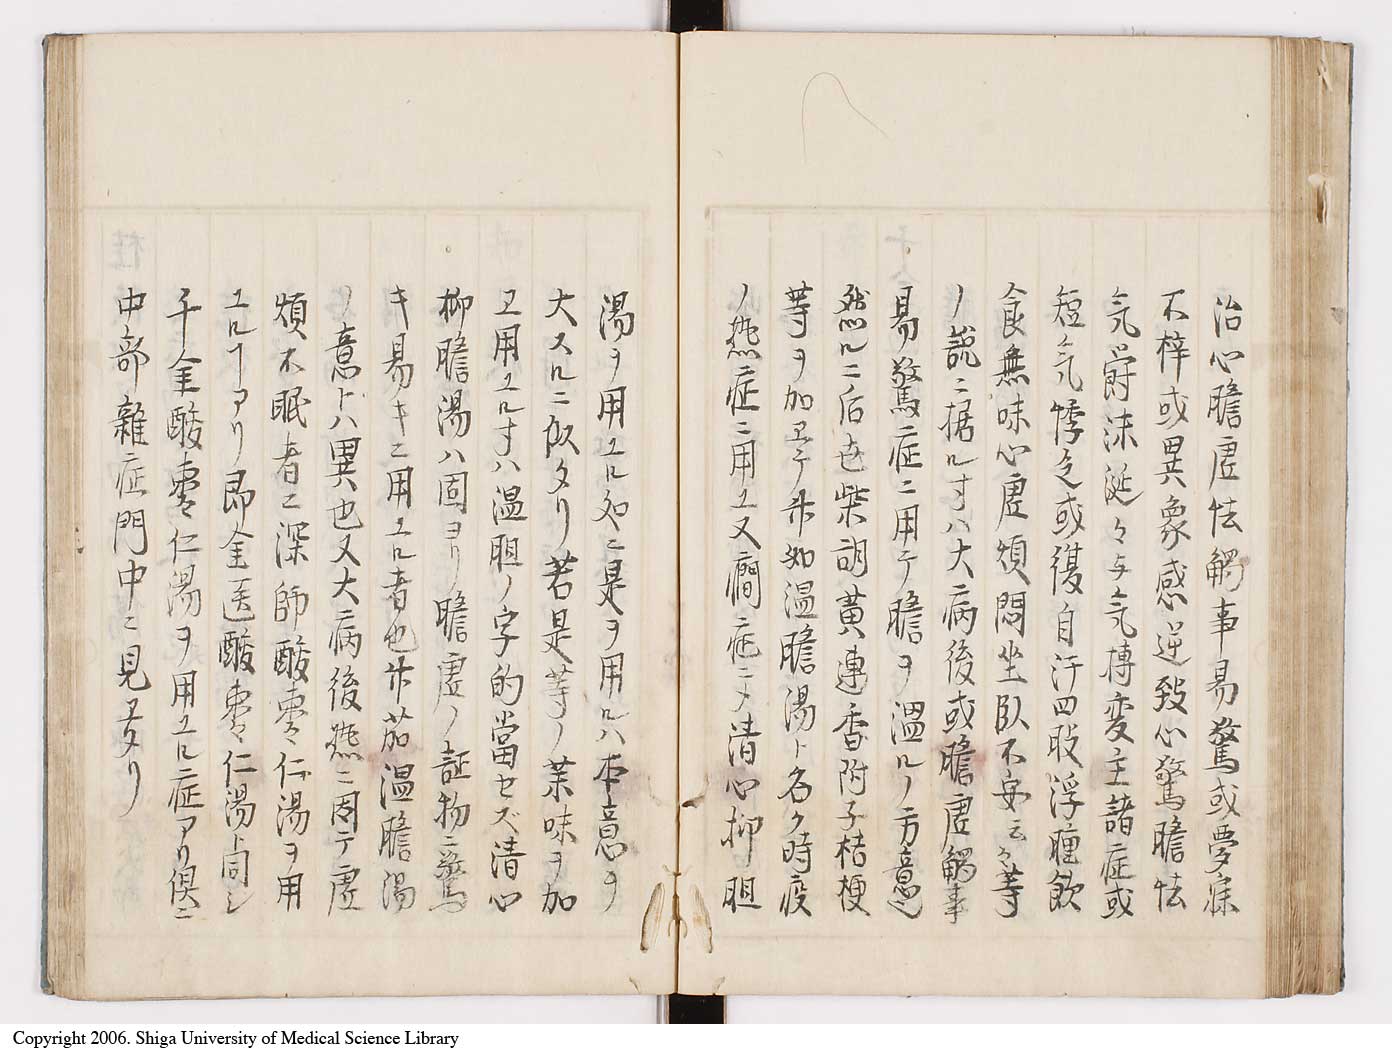 治心膽虚怯觸事易驚或夢寐
不祥或異象感逆致心驚膽怯
气欝沫涎々与气搏変生諸症或
短气悸乏或復自汗四肢浮腫飲
食無味心虚煩悶坐臥不安云々等
ノ説ニ据ル寸ハ大病後或膽虚觸事
易驚症ニ用テ膽ヲ温ルノ方意也
然ルニ后世柴胡黄連香附子桔梗
等ヲ加ヱテ加温膽湯ト名ク時疫
ノ熱症ニ用ヱ又癇症ニメ清心抑胆
湯ヲ用ヱル処ニ是ヲ用ルハ本意ヲ
大スルニ似タリ若是等ノ薬味ヲ加
ヱ用ヱル寸ハ温胆ノ字的當セズ清心
抑膽湯ハ固ヨリ膽虚ノ証物ニ驚
キ易キニ用ヱル者也 加温膽湯
ノ意トハ異也又大病後熱ニ因テ虚
煩不眠者ニ深師酸棗仁湯ヲ用
ヱルヿアリ即金匱酸棗仁湯ト同シ
千金酸棗仁湯ヲ用ヱル症アリ倶ニ
中部雜症門中ニ見ヱタリ
Copyright 2006. Shiga University of Medical Science Library